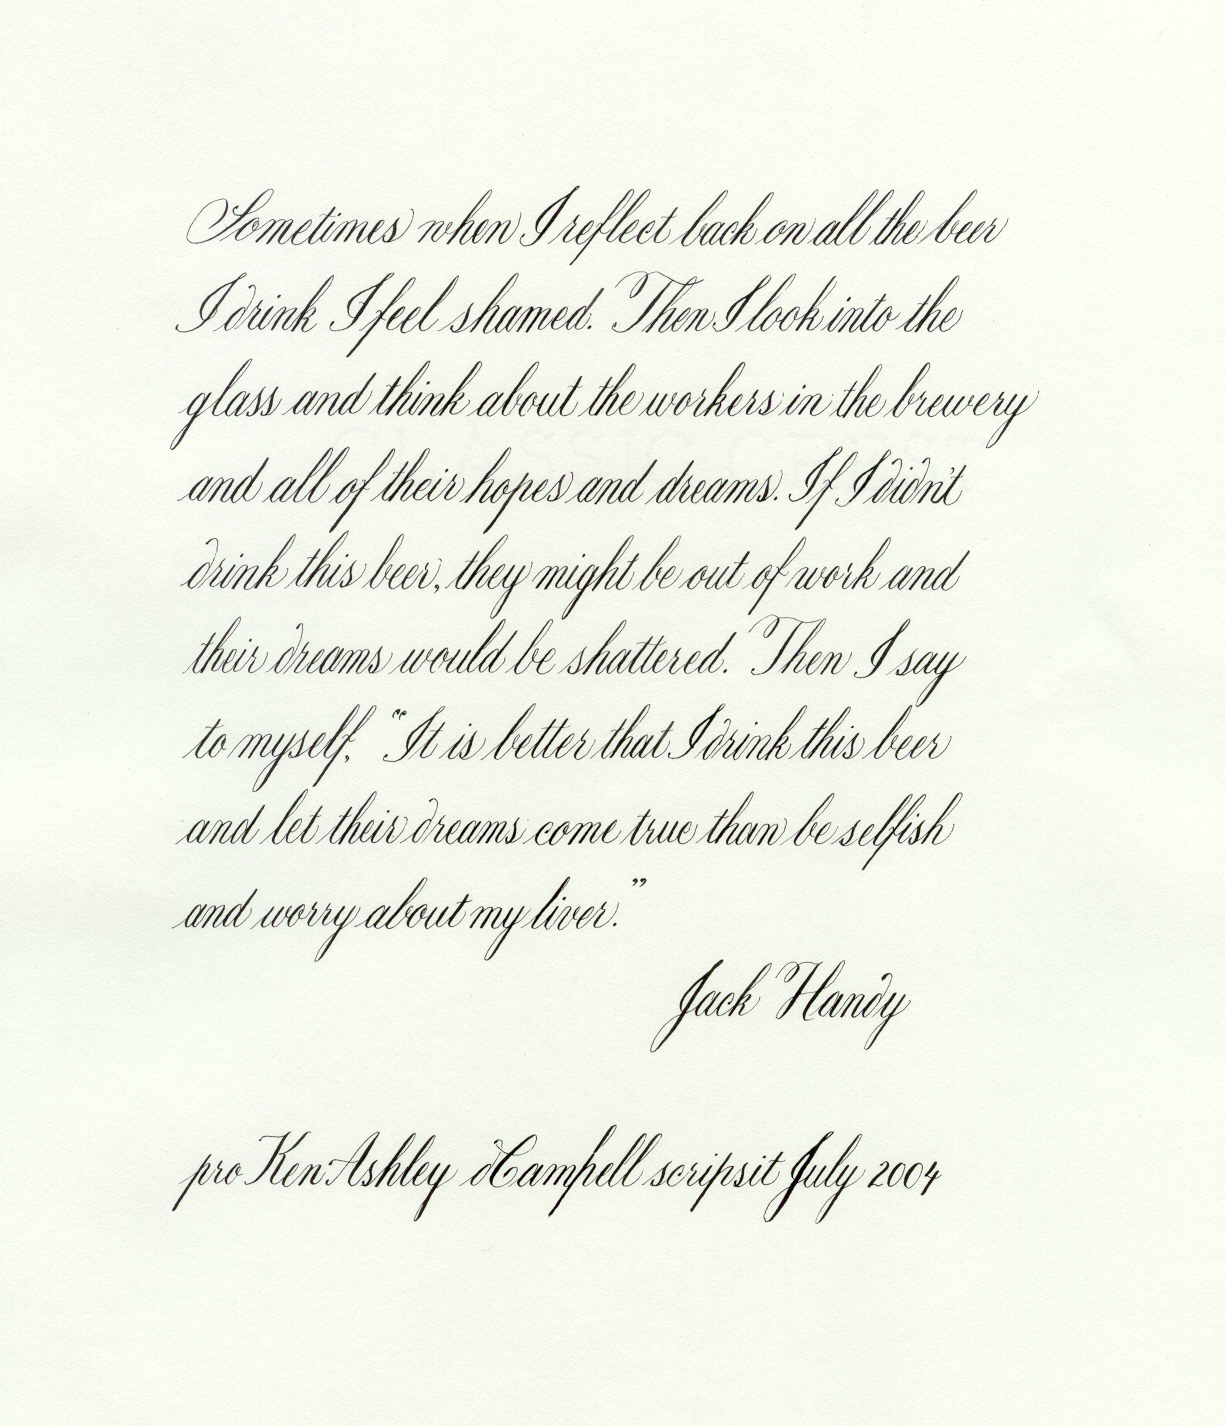 Sometimes when I reflect back on all the beer
I drink I feel shamed. Then I look into the
glass and think about the workers in the brewery
and all of their hopes and dreams. If I didn't
drink this beer, they might be out of work and
their dreams would be shattered. Then I say
to myself, "It is better that I drink this beer
and let their dreams come true than be selfish
and worry about my liver."
Jack Handy
pro Ken Ashley scripsit July 2004